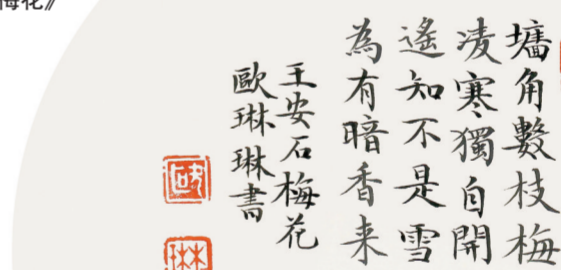 梅花》
墻角數枝梅
凌寒獨自開
遙知不是雪
為有暗香来
王安石梅花
歐琳琳書